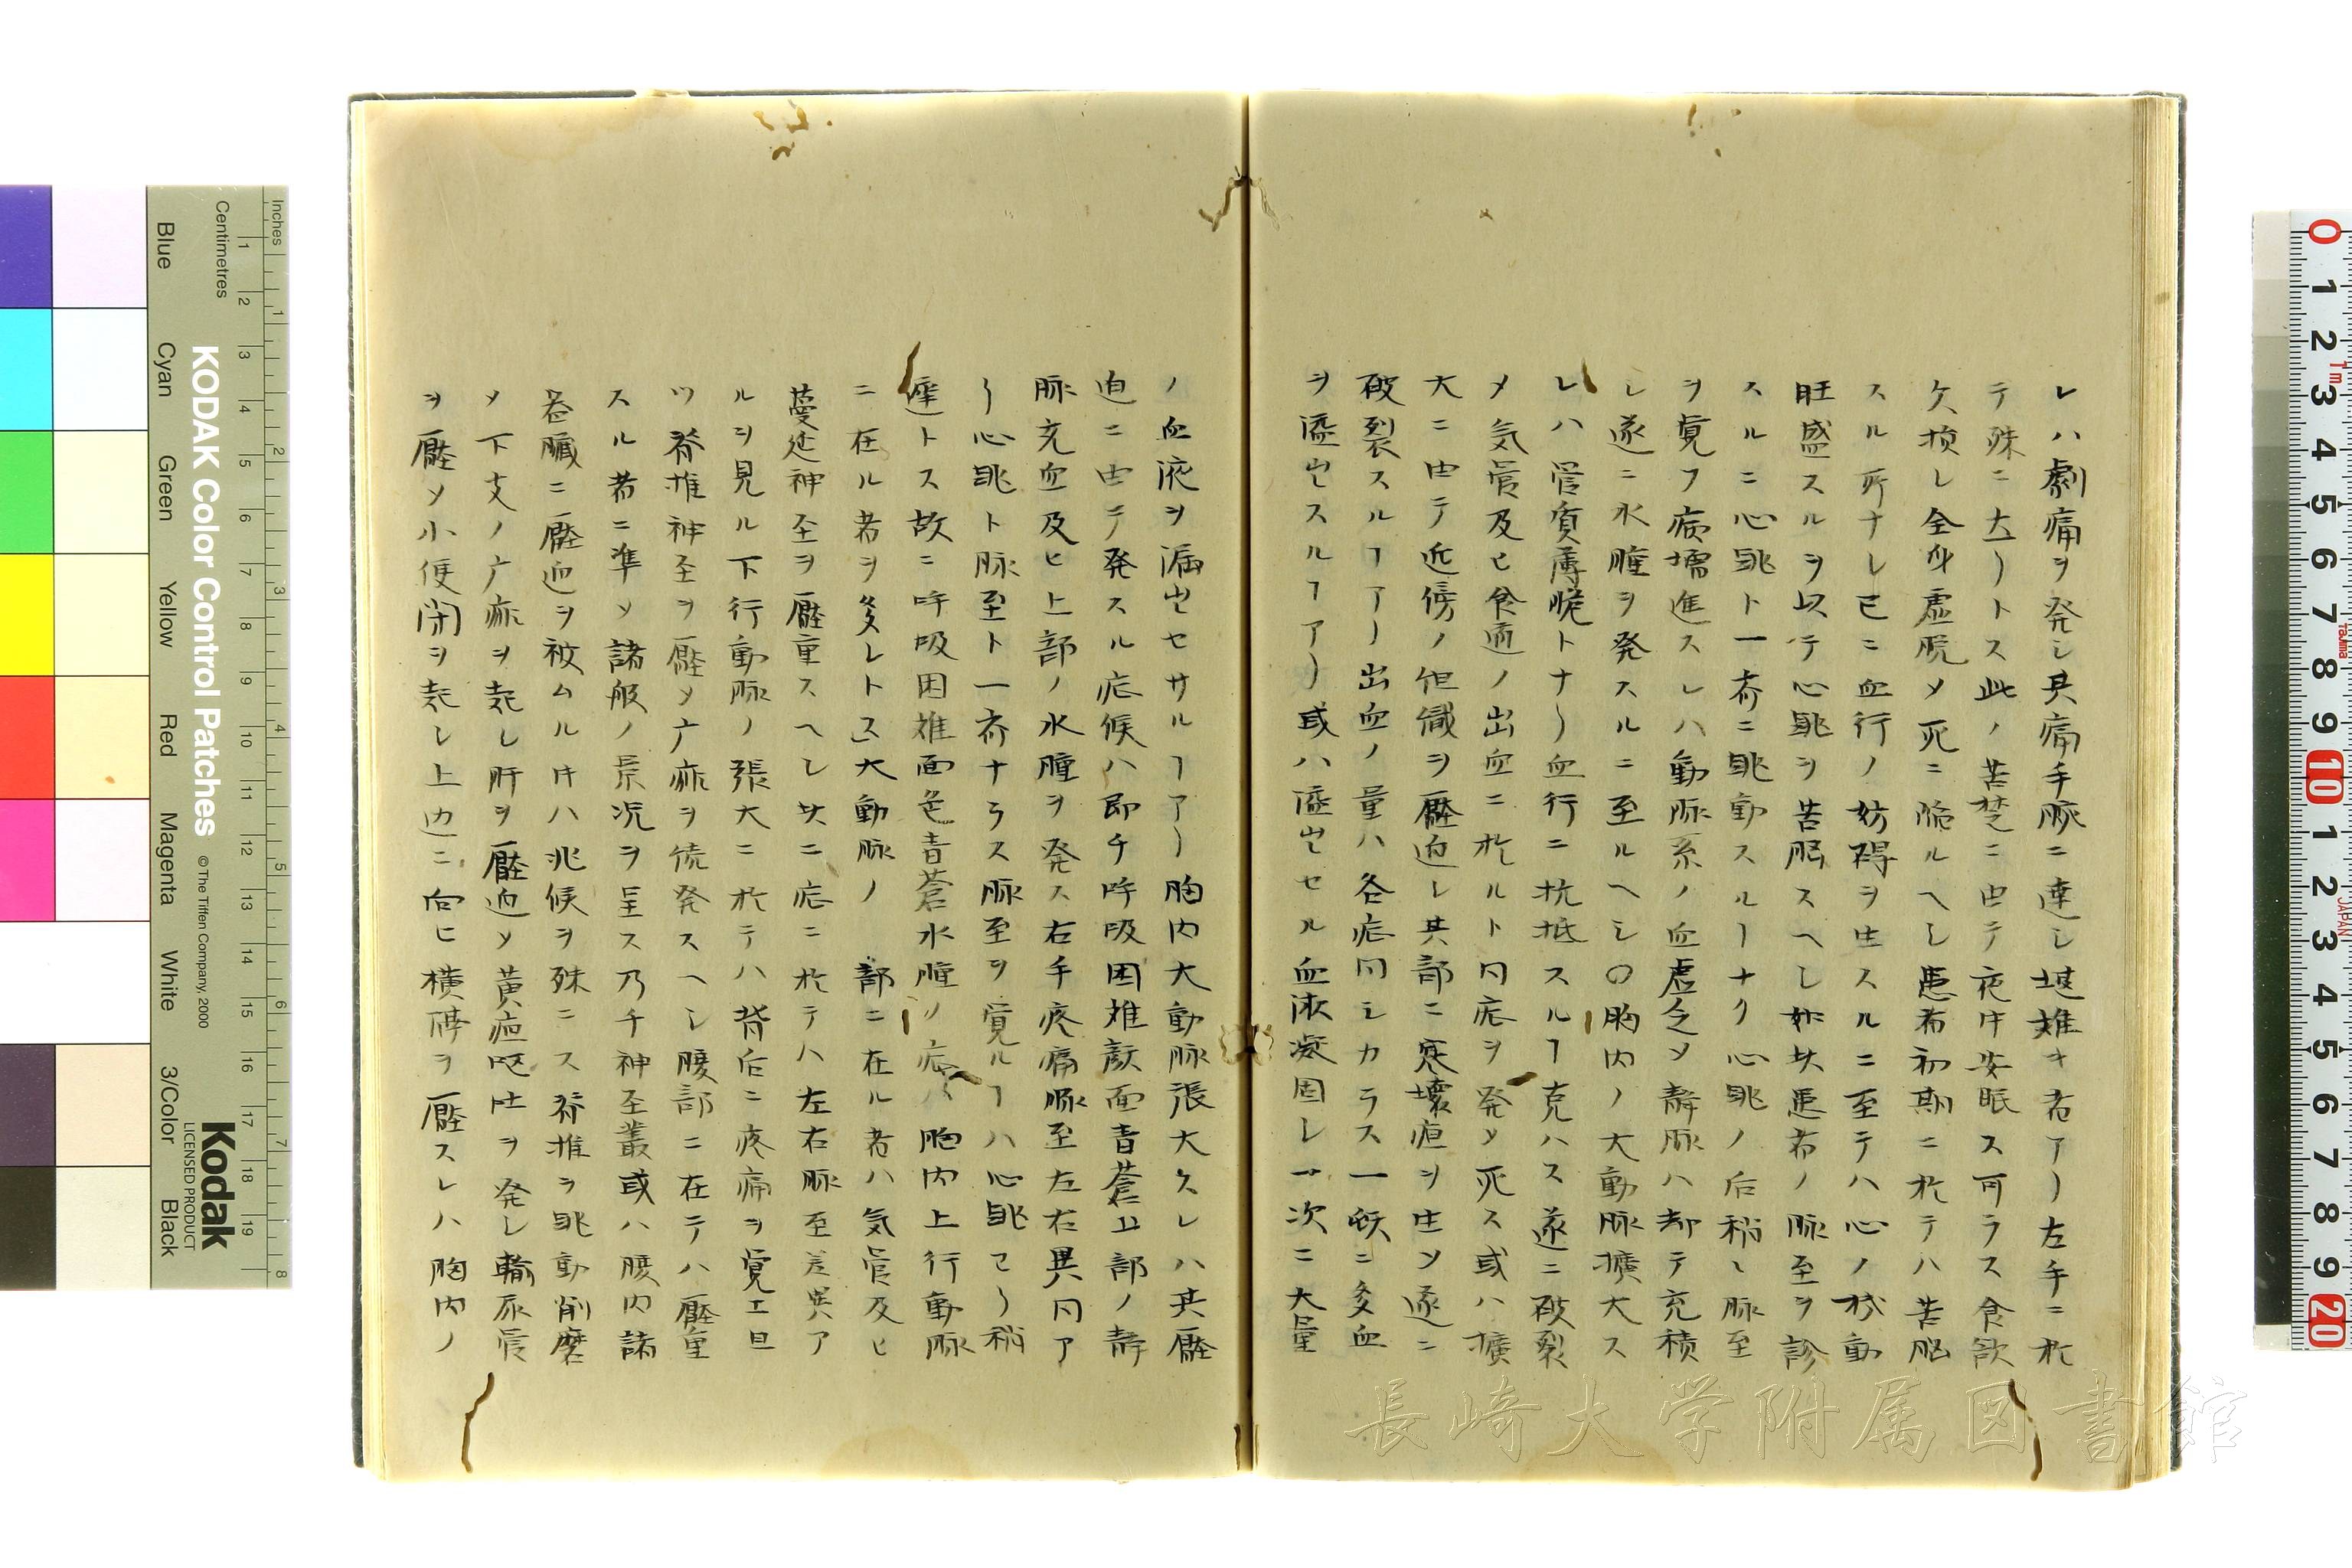 レハ劇痛ヲ発シ其痛手腕ニ達シ堪難キ者アリ左手ニ於
テ殊ニ大ナリトス此ノ苦楚ニ由テ夜中安眠ス可ラス食欲
欠損シ全身虚脱メ死ニ陥ルヘシ患者初期ニ於テハ苦悩
スル所ナシ已ニ血行ノ妨碍ヲ生スルニ至テハ心ノ機動
旺盛スルヲ以テ心跳ヲ苦悩スヘシ如此患者ノ脉至ヲ診
スルニ心跳ト一斉ニ跳動スルヿナク心跳ノ后稍々脉至
ヲ覚フ病増進スレハ動脉系ノ血虚乏メ静脉ハ却テ充積
シ遂ニ水腫ヲ発スルニ至ルヘシ〇胸内ノ大動脉擴大ス
レハ管質薄脆トナリ血行ニ抗抵スルヿ克ハス遂ニ破裂
メ気管及ヒ食道ノ出血ニ於ルト同症ヲ発メ死ス或ハ擴
大ニ由テ近傍ノ組織ヲ壓迫シ其部ニ寒壊疽ヲ生メ遂ニ
破裂スルヿアリ出血ノ量ハ各症同シカラス一時ニ多血
ヲ溢出スルヿアリ或ハ溢出セル血液凝固シ一次ニ大量
ノ血液ヲ漏出セサルヿアリ胸内大動脉張大スレハ其壓
迫ニ由テ発スル症候ハ即チ呼吸困難顔面青蒼上部ノ静
脉充血及ヒ上部ノ水腫ヲ発ス右手疼痛脉至左右異同ア
リ心跳ト脉至ト一斉ナラス脉至ヲ覚ルヿハ心跳ヨリ稍
遅トス故ニ呼吸困難面色青蒼水腫ノ症ハ胸内上行動脉
ニ在ル者ヲ多シトス」大動脉ノ 部ニ在ル者ハ気管及ヒ
蔓延神至ヲ壓重スヘシ此ニ症ニ於テハ左右脉至差異ア
ルヲ見ル下行動脉ノ張大ニ於テハ背后ニ疼痛ヲ覚エ且
ツ脊推神至ヲ壓メ广痲ヲ続発スヘシ腰部ニ在テハ壓重
スル者ニ準メ諸般ノ景况ヲ呈ス乃チ神至叢或ハ腰内諸
器臓ニ壓迫ヲ被ムル片ハ兆候ヲ殊ニス脊推ヲ跳動削磨
メ下支ノ广痲ヲ起シ肝ヲ壓迫メ黄疸嘔吐ヲ発シ輸尿管
ヲ壓メ小便閉ヲ起シ上辺ニ向ヒ横膈ヲ壓スレハ胸内ノ
長崎大学附属図書館
KODAK Color Control Patches
© The Tiffen Company, 2000
Kodak
LICENSED PRODUCT
Inches
Centimetres
Blue
Cyan
Green
Yellow
Red
Magenta
White
3/Color
Black